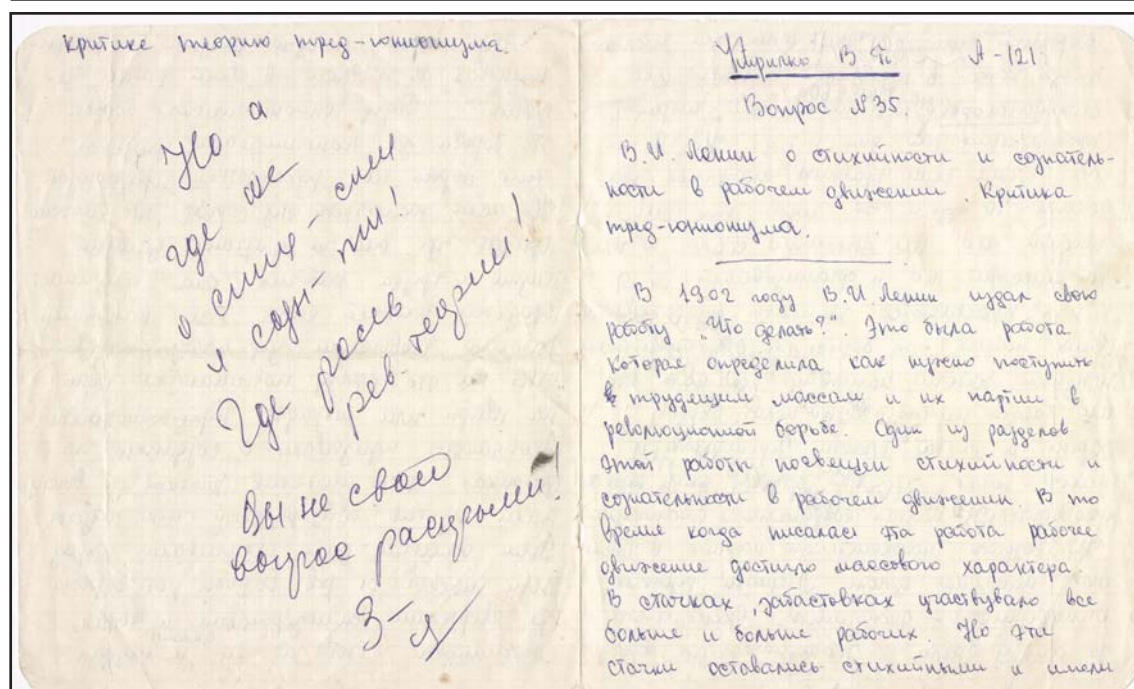 критике теорию тред-юнионизма.
Но а
где же
о стихи-сти
и созн-ти!
Где рабсев
рев теории!
Вы не свой
вопрос раскрыли!
3-
В. А-121
Вопрос №35.
В.И. Ленин о стихийности и сознатель-
ности в рабочем движении. Критика
тред-юнионизма.
В 1902 году В.И Ленин издал свою
работу "Что делать?". Это была работа
которая определила как нужно поступить
трудящим массам и их партии в
революционной борьбе. Один из разделов
этой работы посвящен стихийности и
сознательности в рабочем движении. В то
время когда писалась эта работа рабочее
движение достигло массового характера
В стачках, забастовках участвувало все
больше и больше рабочих. Но эти
стачки оставались стихийными и имели